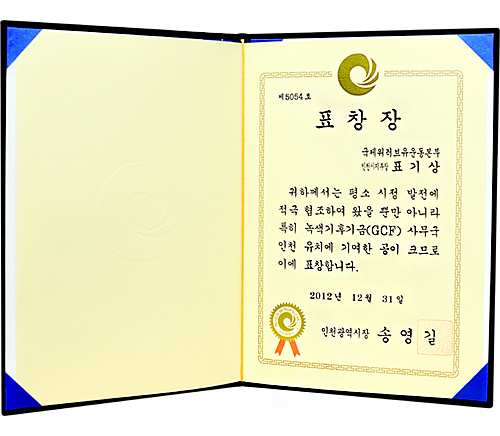 제5054호
표창장
국제위러브유운동본부
인천시지부장 표기상
귀하께서는 평소 시정 발전에
적극 협조하여 왔을 뿐만 아니라
특히 녹색기후기금(GCF) 사무국
인천 유치에 기여한 공이 크므로
이에 표창합니다.
2012년 12월 31일
인천광역시장 송영길